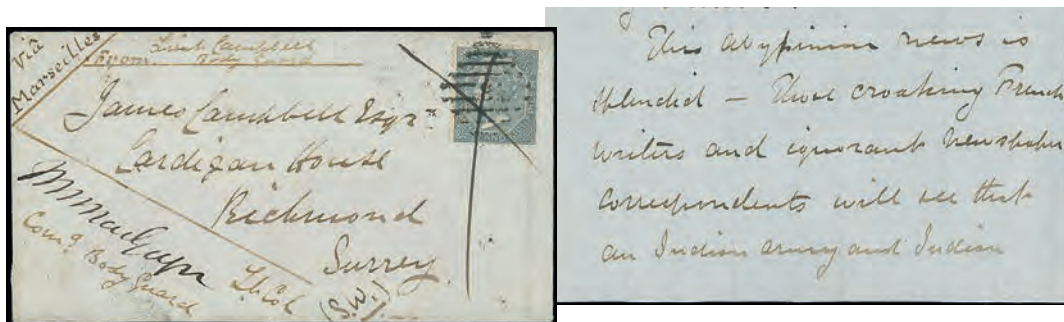 Viâ
Marseilles
From Lieut Campbell
Body Guard
James Campbell Esqr
Cardigan House
Richmond
Surrey
(S.W.)
Comg. Body Guard
Lt. Col
This Abyssinian news is
splendid — Those croaking French
writers and ignorant newspaper
correspondents will see that
an Indian army and Indian